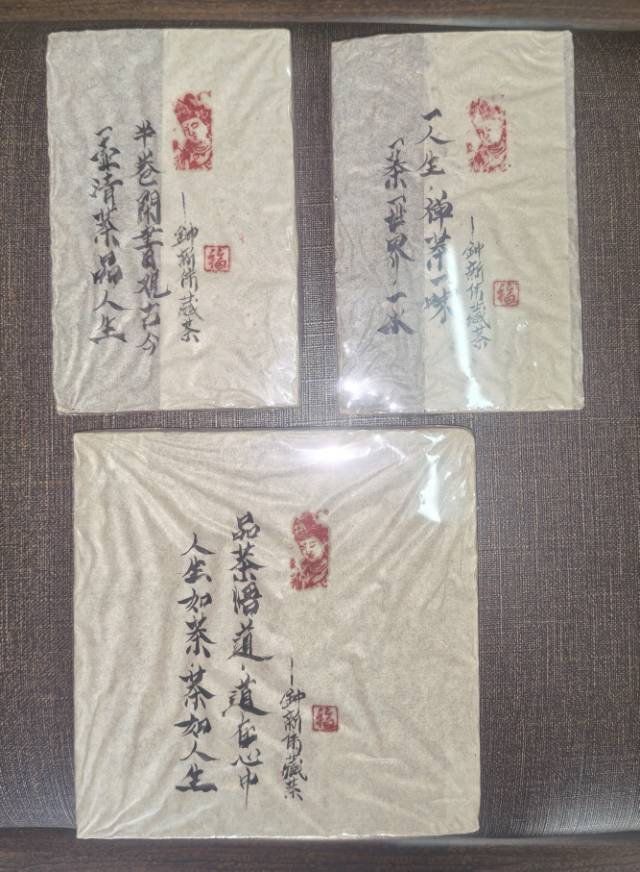 一壶清茶品人生
半卷闲書观古今
—鈡新藏茶
福
一茶一世界·一水
一人生·禅茶一味
—鈡新藏茶
福
人生如茶·茶如人生
品茶悟道·道在心中
—鈡新藏茶
福